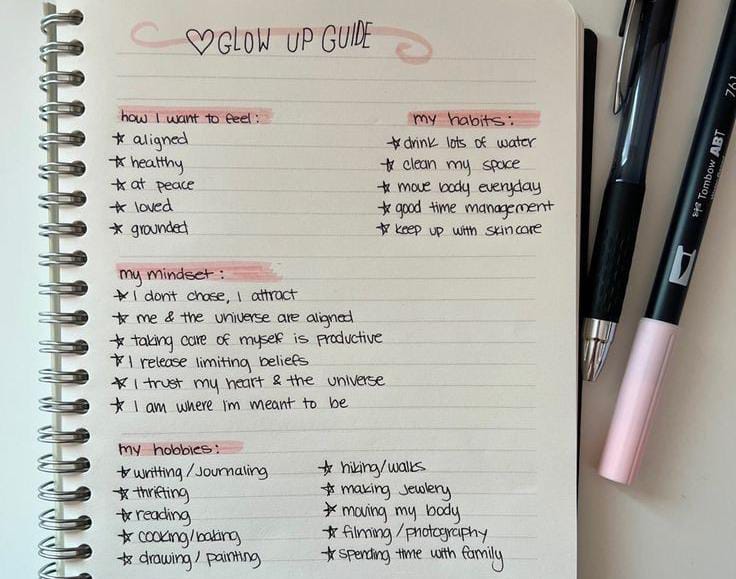 ♡GLOW UP GUIDE
how I want to feel:
☆ aligned
☆ healthy
☆ at peace
☆ loved
☆ grounded
my habits:
☆ drink lots of water
☆ clean my space
☆ move body everyday
☆ good time management
☆ keep up with skincare
my mindset:
☆ I dont chase, I attract
☆ me & the universe are aligned
☆ taking care of myself is productive
☆ I release limiting beliefs
☆ I trust my heart & the universe
☆ I am where I'm meant to be
my hobbies:
☆ writting/journaling
☆ thrifting
☆ reading
☆ cooking/baking
☆ drawing/painting
☆ hiking/walks
☆ making jewlery
☆ moving my body
☆ filming/photography
☆ spending time with family
Tombow ABT
761